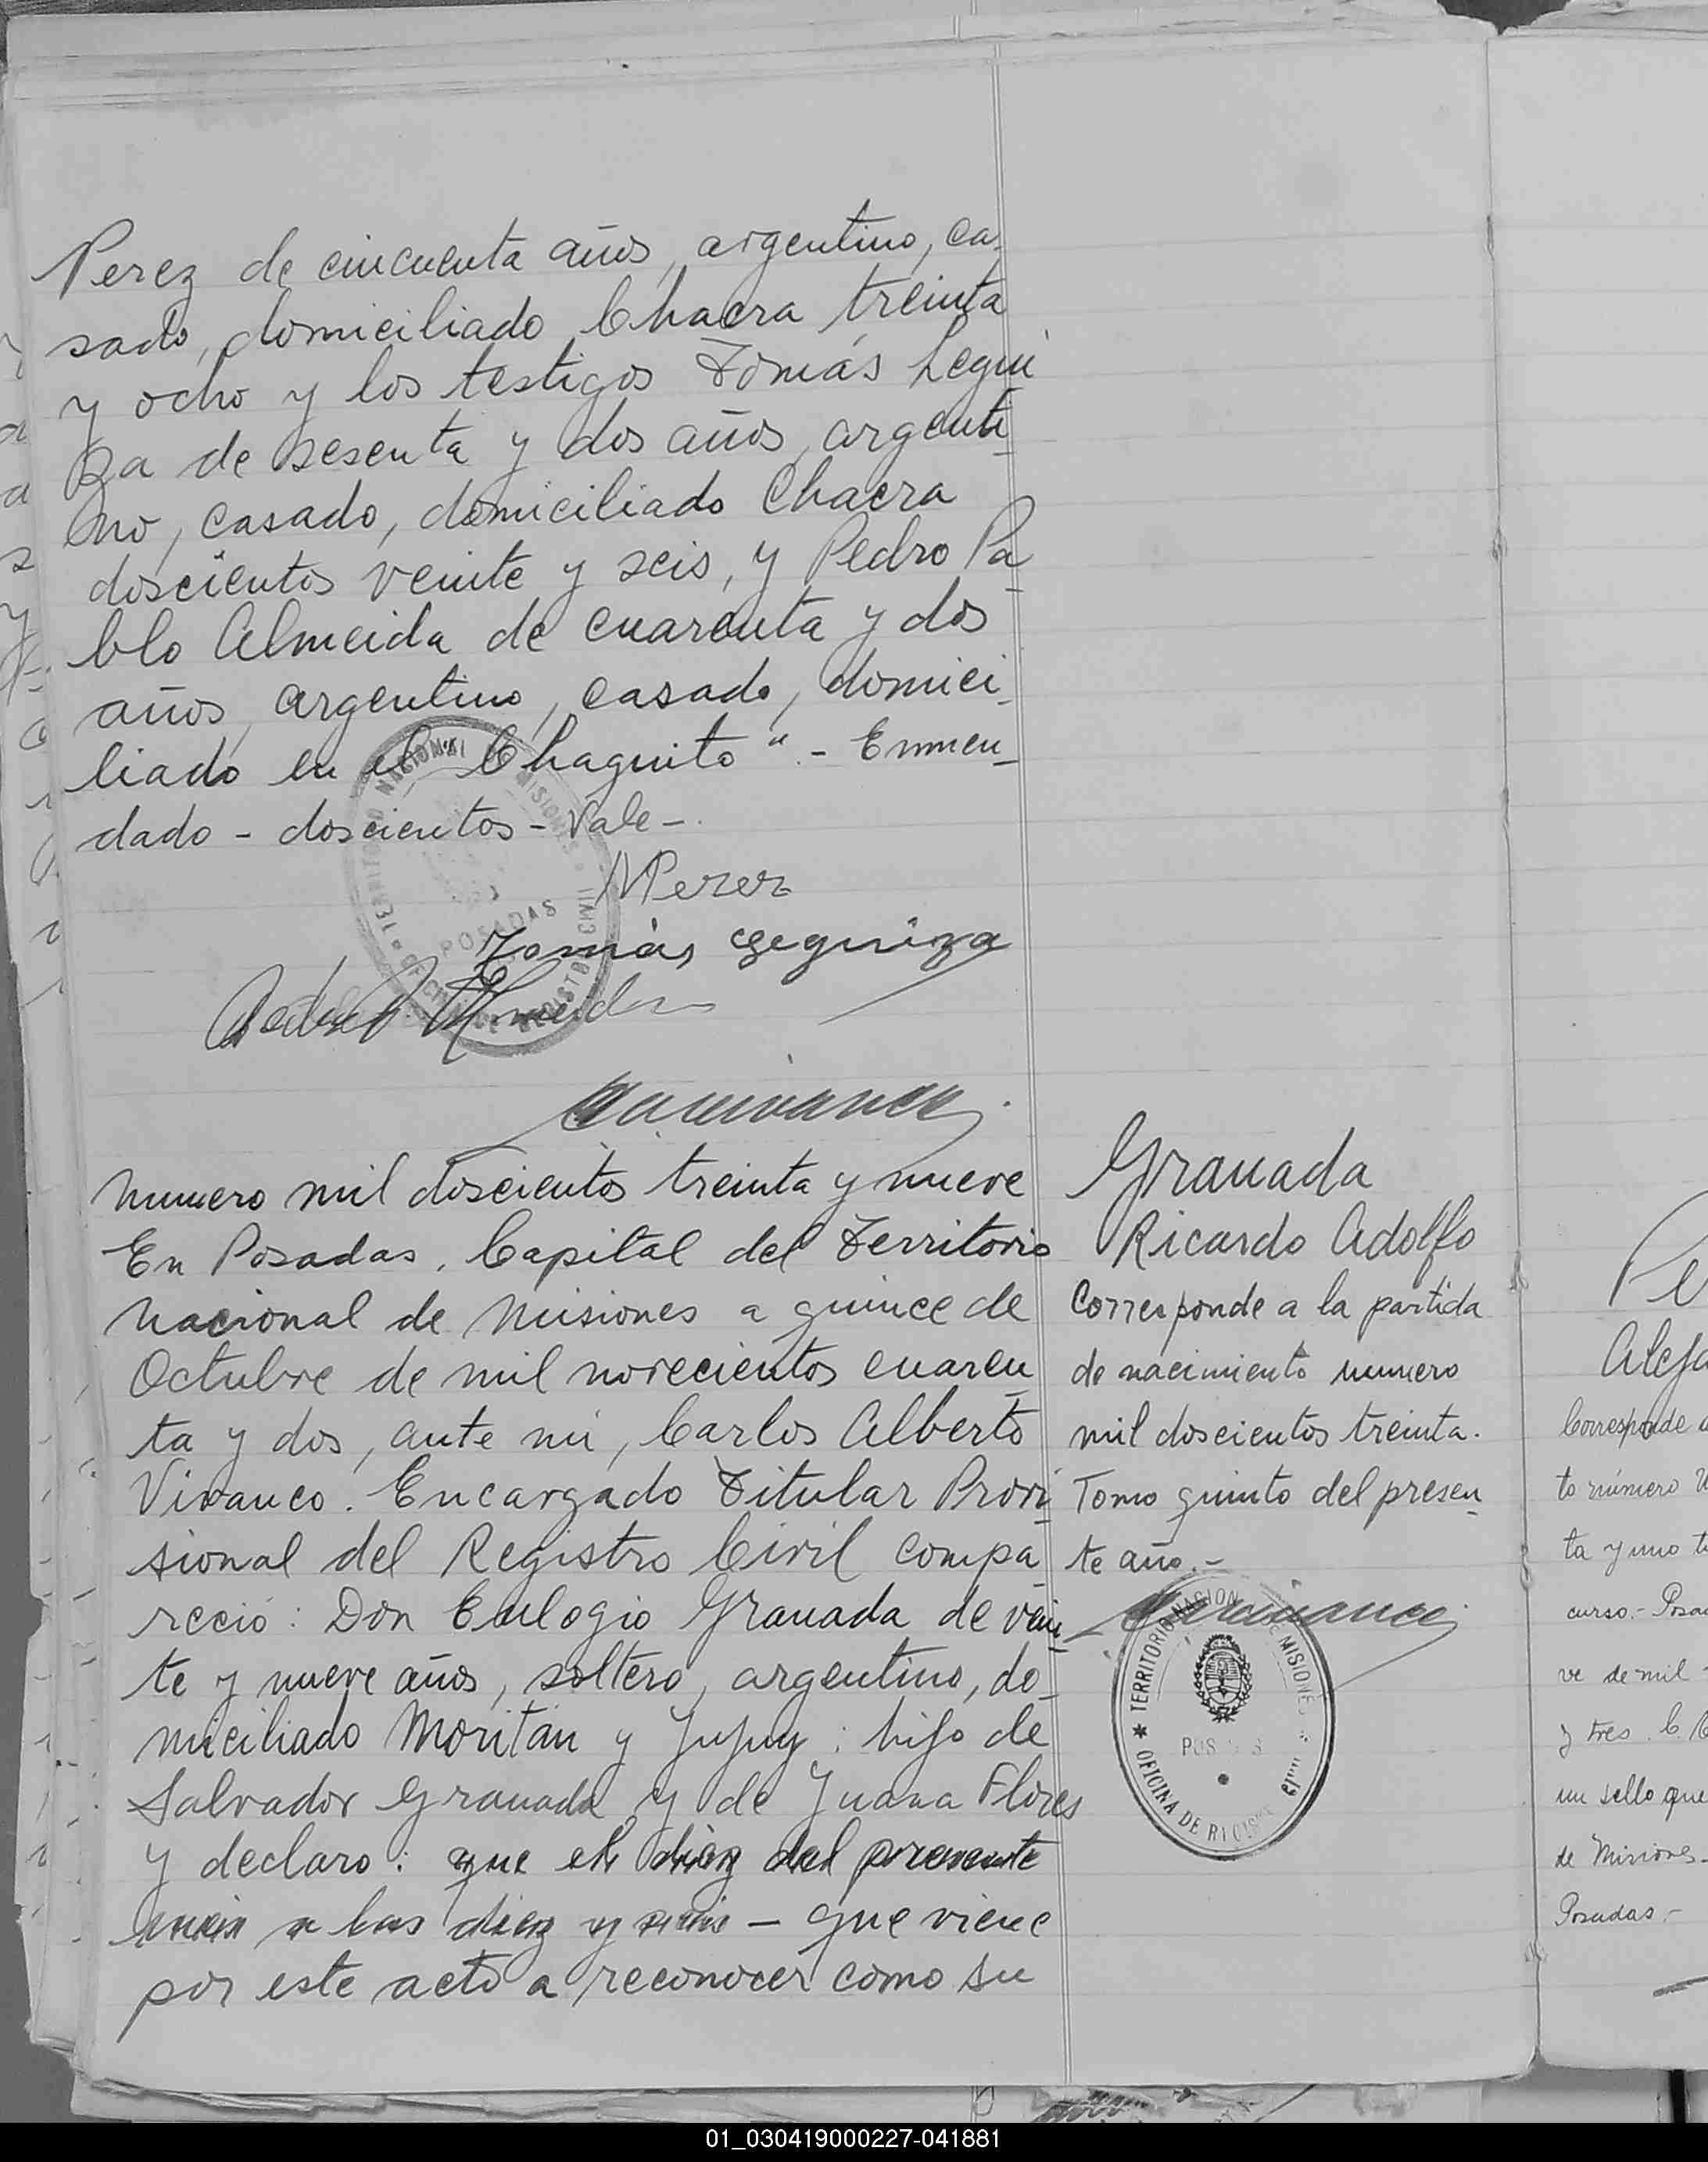 Perez de cincuenta años, argentino, ca-
sado, domiciliado Chacra treinta
y ocho y los testigos Tomás Legui
za de sesenta y dos años, argenti-
no, casado, domiciliado Chacra
doscientos veinte y seis, y Pedro Pa-
blo Almeida de cuarenta y dos
años, argentino, casado, domici-
liado en el "Chaquito". - Enmen-
dado - doscientos - Vale -.
NPerez
Tomás Leguiza
Pedro P. Almeida
Numero mil doscientos treinta y nueve
En Posadas, Capital del Territorio
Nacional de Misiones a quince de
Octubre de mil novecientos cuaren-
ta y dos, ante mi, Carlos Alberto
Vivanco. Encargado Titular Provi-
sional del Registro Civil compa-
reció: Don Eulogio Granada de vein-
te y nueve años, soltero, argentino, do-
miciliado Moritán y Jujuy: hijo de
Salvador Granada y de Juana Flores
y declaro: que el diez del presente
mes a las diez y seis - que viene
por este acto a reconocer como su
Granada
Ricardo Adolfo
Corresponde a la partida
de nacimiento numero
mil doscientos treinta.
Tomo quinto del presen-
te año.-
TERRITORIO NACIONAL DE MISIONES
POSADAS
OFICINA DE REGISTRO CIVIL
Corresponde a
to número
ta y uno t
curso.- Posa
ve de mil
y tres. C.
un sello que
de Misiones-
Posadas.-
01_030419000227-041881